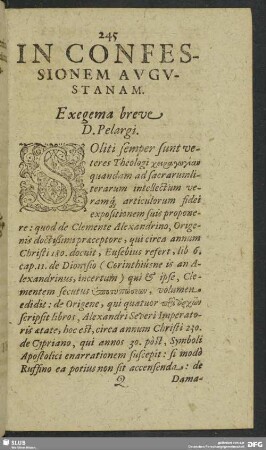 245
IN CONFES-
SIONEM AVGV-
STANAM.
Exegema breve
D. Pelargi.
SOliti semper sunt ve-
teres Theologi χειραγωγίαν
quandam ad sacrarum li-
terarum intellectum ve-
ramq́, articulorum fidei
expositionem suis propone-
re: quod de Clemente Alexandrino, Orige-
nis doctissimi præceptore, qui circa annum
Christi 180. docuit, Eusebius refert. lib 6.
cap. 11. de Dionysio (Corinthiène is an A-
lexandrinus, incertum) qui & ipse, Cle-
mentem secutus volumen
edidit: de Origene, qui quatuor περὶ ἀρχῶν
scripsit libros, Alexandri Severi Imperato-
ris ætate, hoc est, circa annum Christi 230.
de Cypriano, qui annos 30. pòst, Symboli
Apostolici enarrationem suscepit: si modò
Ruffino ea potius non sit accensenda: de
Q Dama-
SLUB
DFG